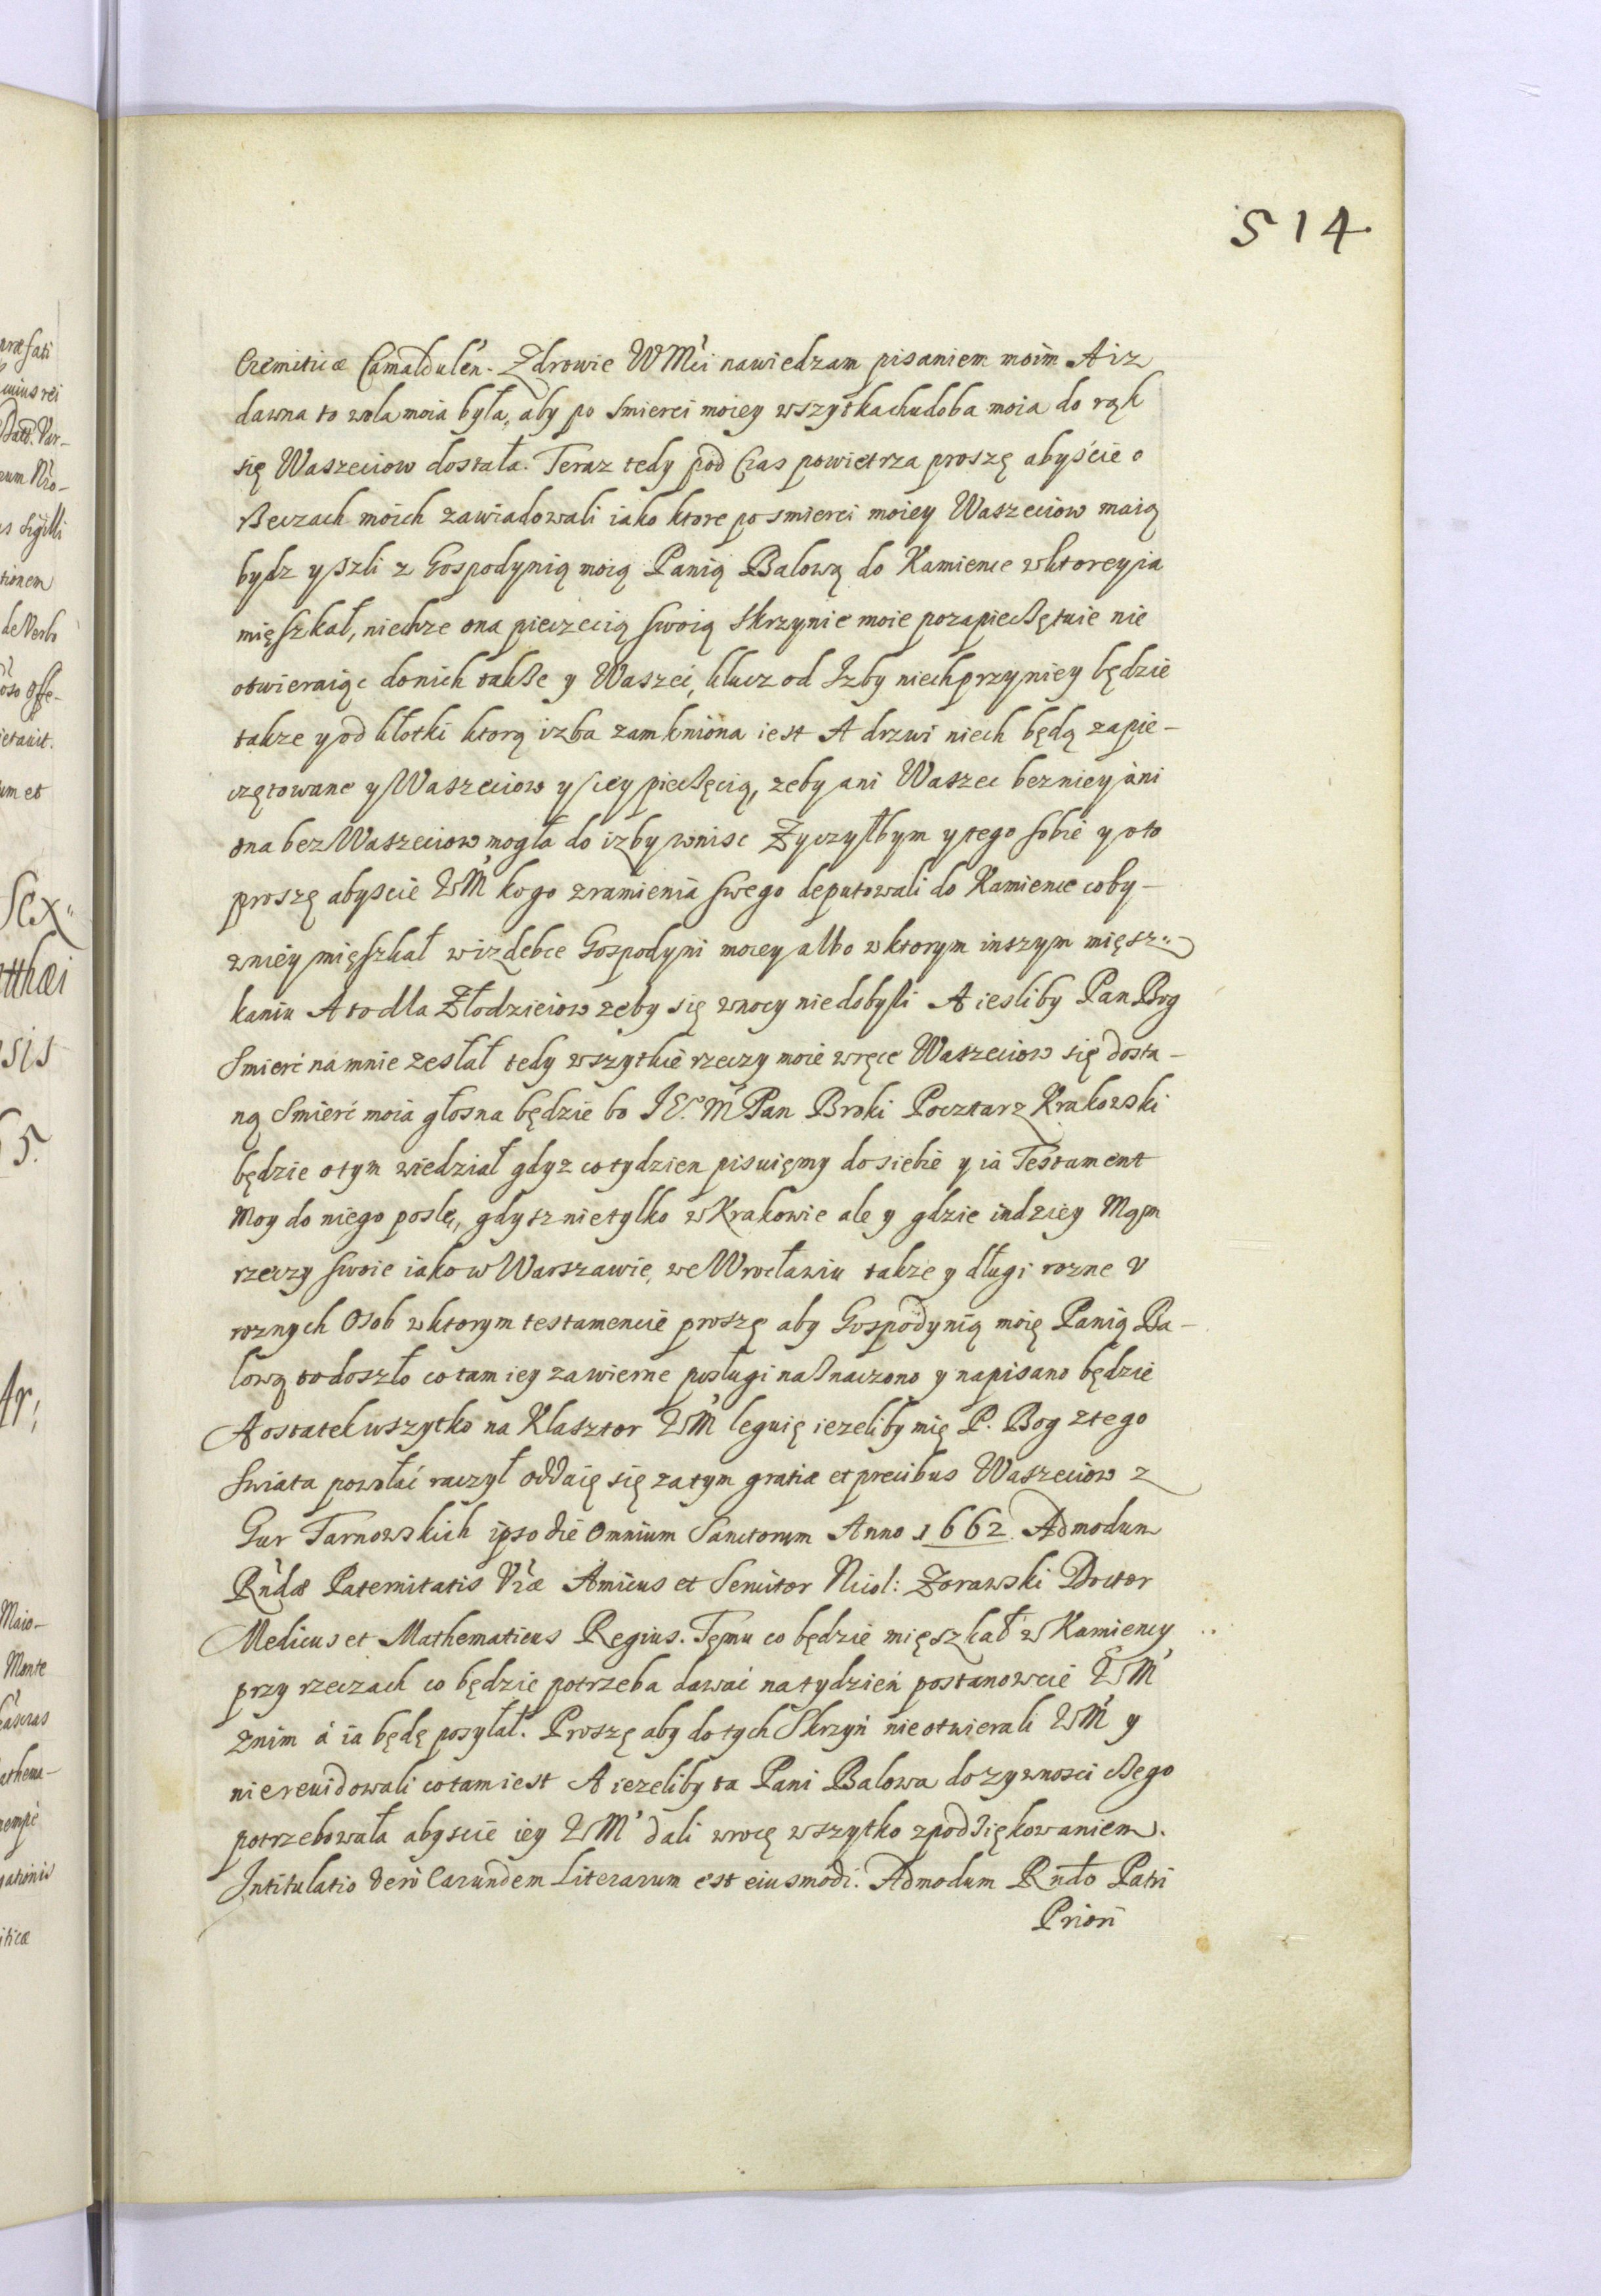 514.
Eremiticæ Camaldulen̄. Zdrowie WMći nawiedzam pisaniem moim A iz
dawna to wola moia była, aby po smierci moiey wszytka chudoba moia do rąk
się Waszeciow dostała. Teraz tedy pod Czas powietrza proszę abyście o
rzeczach moich zawiadowali iako ktore po smierci moiey Waszeciow maią
bydz y szli z Gospodynią moią Panią Balową do Kamience w ktorey ia
mięszkał, niechze ona pieczecią swoią Skrzynie moie pozapieczętuie nie
otwieraiąc do nich takze y Waszeć, klucz od Izby niech przy niey będzie
takze y od kłotki ktorą izba zamkniona iest A drzwi niech będą zapie-
czętowane y Waszeciow y iey pieczęcią, zeby ani Waszec bez niey ani
ona bez Waszeciow mogła do izby wnisc Zyczyłbym y tego sobie y o to
proszę abyscie WM̃ kogo z ramienia swego deputowali do Kamience coby-
w niey mięszkał w izdebce Gospodyni moiey albo w ktorym inszym mięsz-
kaniu A to dla Złodzieiow zeby się w nocy nie dobyli A iesliby Pan Bog
Smierć na mnie zesłał tedy wszytkie rzeczy moie w ręce Waszeciow się dosta-
ną Smierć moia głosna będzie bo IE°M̃ Pan Broki Pocztarz Krakowski
będzie o tym wiedział gdyz co tydzien pisuięmy do siebie y ia Testament
Moy do niego poslę, gdysz nie tylko w Krakowie ale y gdzie indziey Mąm
rzeczy swoie iako w Warszawie, we Wrocławiu takze y długi rozne V
roznych Osob w ktorym testamencie proszę aby Gospodynią moię Panią Ba-
lową to doszło co tam iey za wierne posługi naznaczono y napisano będzie
A ostatek wszytko na Klasztor WM̃ leguię iezeliby mię P. Bog z tego
Swiata powołać raczył oddaię się zatym gratiæ et precibus Waszeciow z
Gur Tarnowskich ipso die Omnium Sanctorum Anno 1662 Admodum
Rn̄dæ Paternitatis Vr̄æ Amicus et Seruitor Nicol: Zorawski Doctor
Medicus et Mathematicus Regius. Tęmu co będzie mięszkał w Kamiency
przy rzeczach co będzie potrzeba dawać na tydzień postanowcie WM̃
z nim á ia będę posyłał. Proszę aby do tych Skrzyń nie otwierali WM̃ y
nie reuidowali co tam iest A iezeliby ta Pani Balowa do zywnosci czego
potrzebowała abyscie iey WM̃ dali wrocę wszytko z podziękowaniem.
Intitulatio vero Earundem Literarum est eiusmodi. Admodum Rndo Patri
Priori